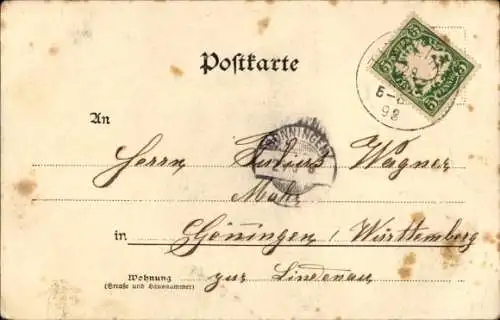 Postkarte
5 5
5 5
6-
98
An
GÖNNINGEN
Herrn Julius Wagner
in Gönningen, Württemberg
Wohnung
(Straße und Hausnummer)
zur Lindenau